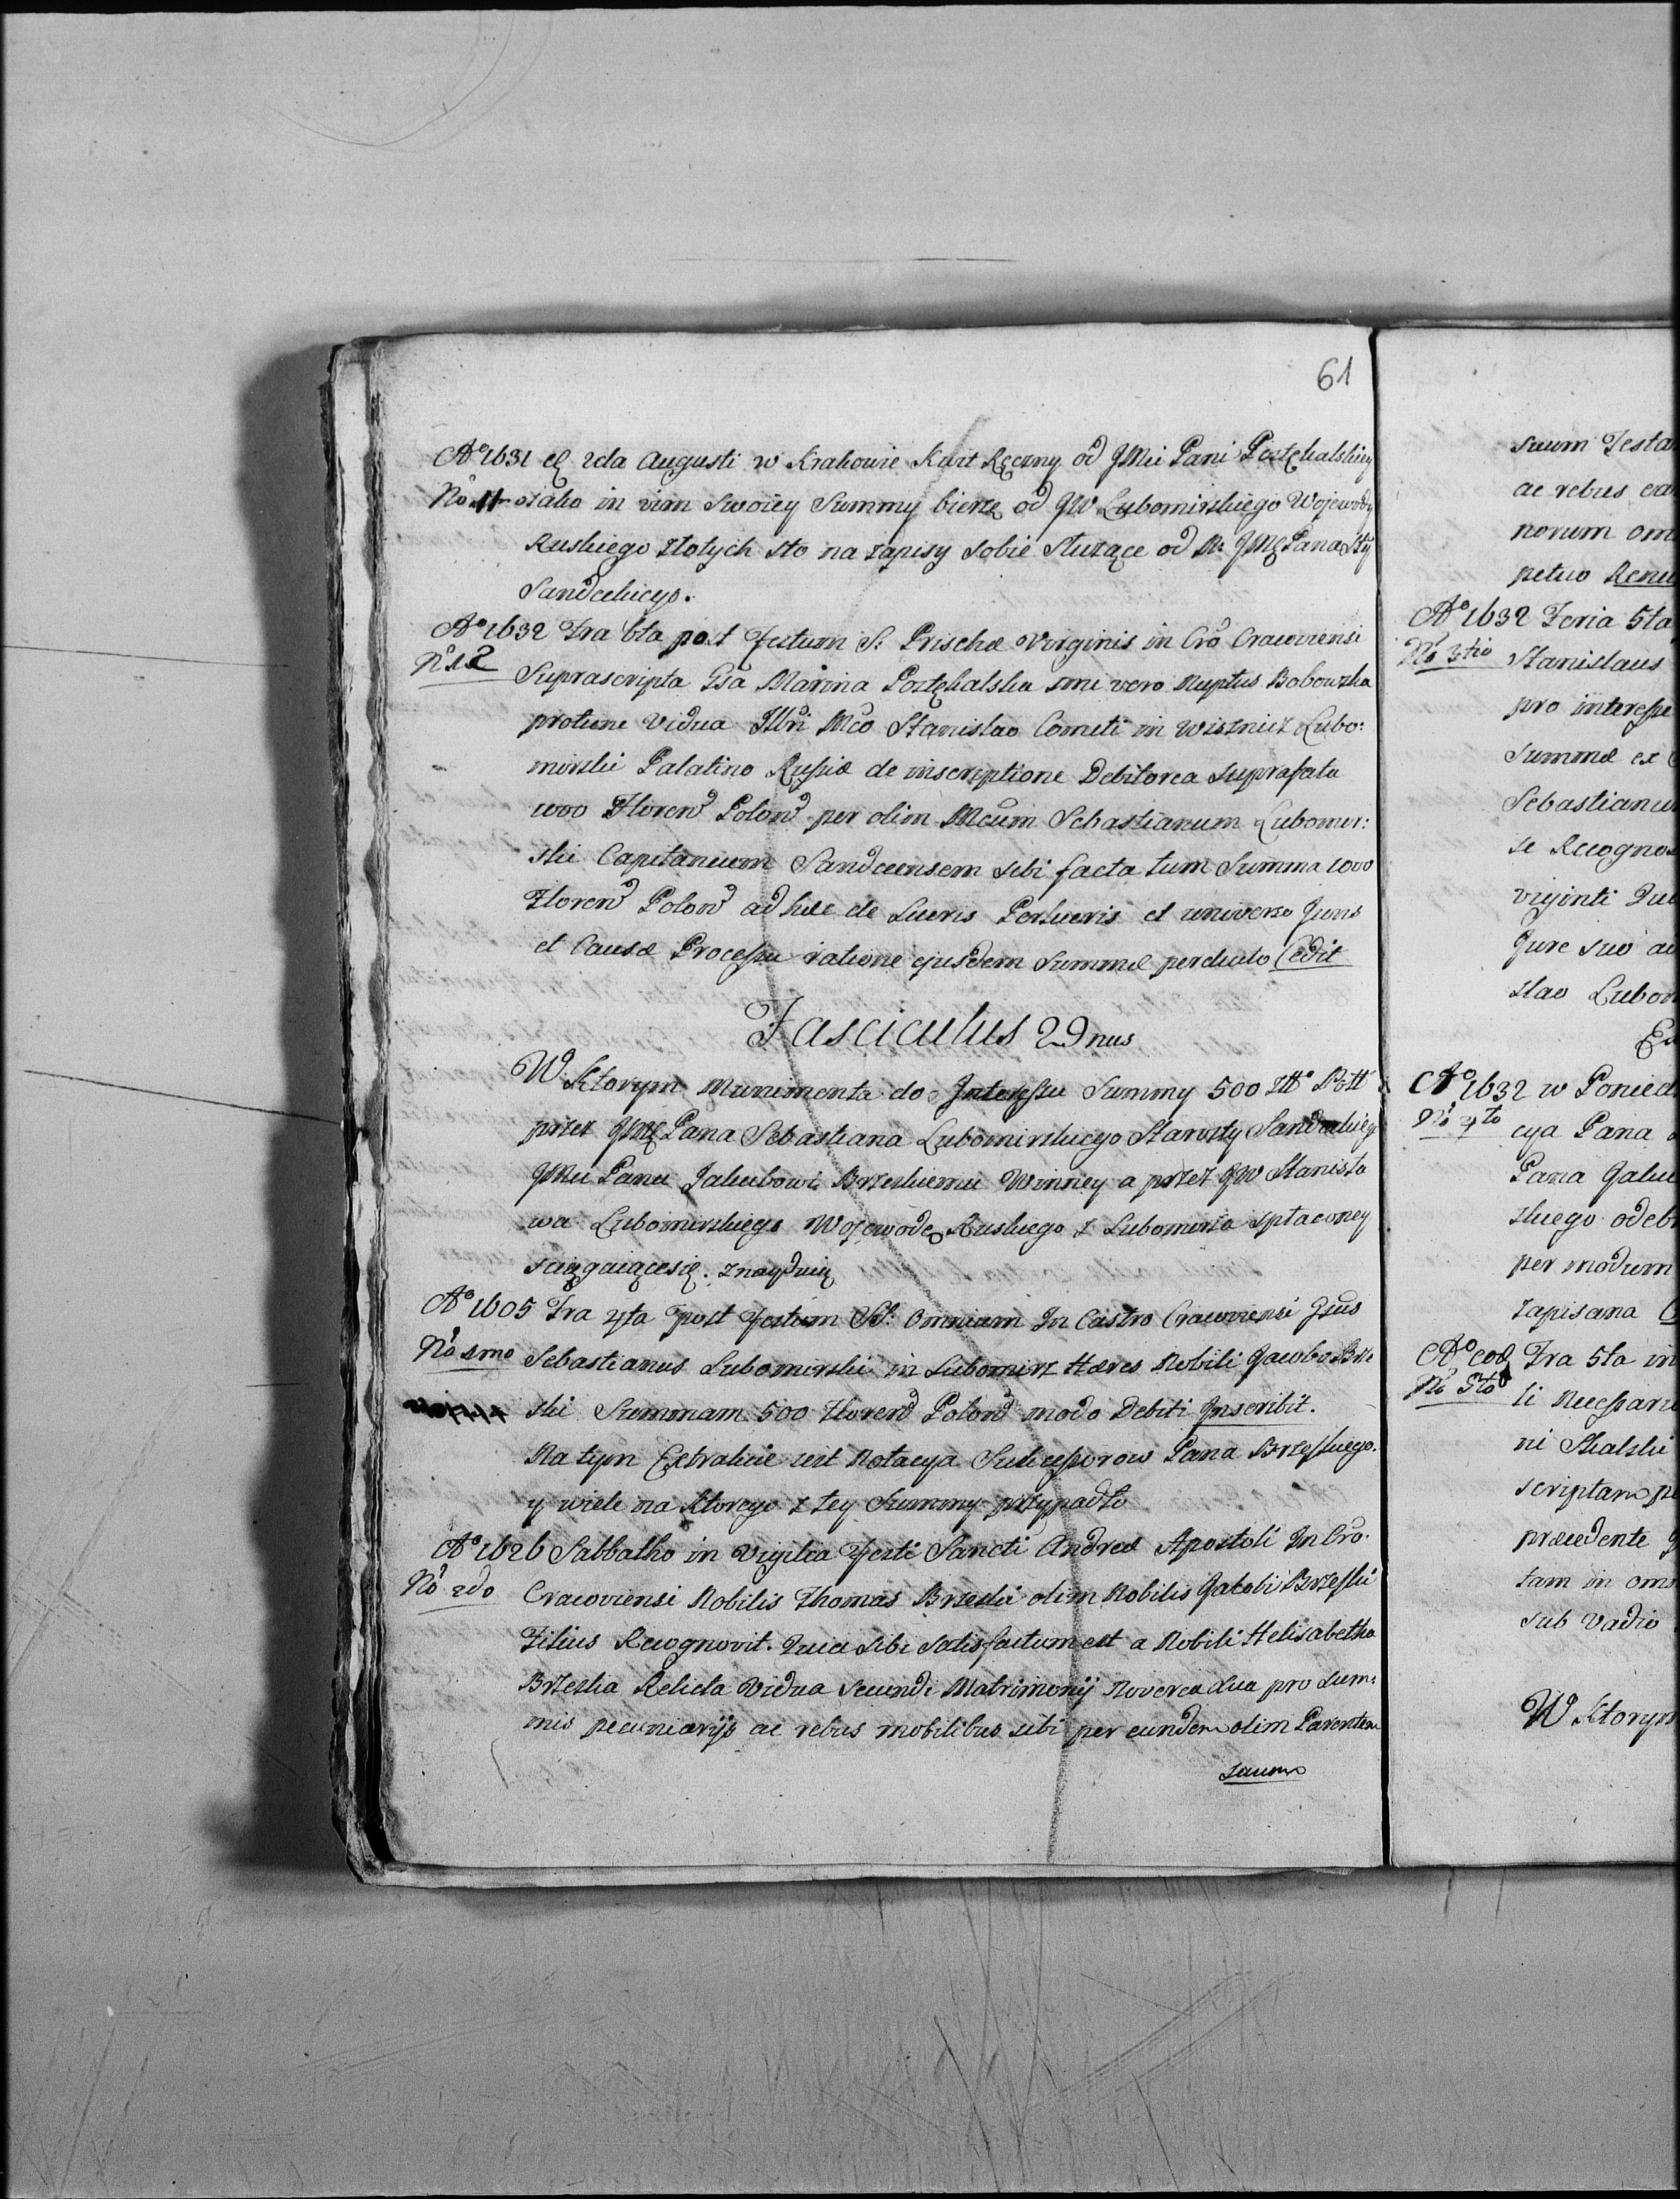 61
Aº 1631 d 2da Augusti w Krakowie Kart Ręczny od JMci Pani Poztękalskiey
No 11 o iako in vim Swoiey Summy bierze od JW Lubomirskiego Wojewody
Ruskiego złotych sto na zapisy sobie słuzące od N: JMę Pana Sty
Sandeckiego.
Aº 1632 Fra 6ta post Festum S: Prischæ Virginis in Cro Cracoviensi
No 12 Suprascripta Gsa Marina Poztękalska 1mi vero Nuptus Bobowska
protunc Vidua Illri Mco Stanislao Comiti in Wisnicz Lubo:
mirski Palatino Russiæ de inscriptione Debitorea suprafata
1000 Floren Polon per olim Mcum Sebastianum Lubomir:
ski Capitaneum Sandecensem sibi facta tum Summa 1000
Floren Polon ad hæc de Lucris Perlucris et universo Juris
et Causæ Processu ratione ejusdem Summæ perducto Cedit
Fasciculus 29nus
W Ktorym Munimenta do Interessu Summy 500 złł Poll
przez JMę Pana Sebastiana Lubomirskiego Starosty Sandeckieg
JMci Panu Jakubowi Brzeskiemu Winney a przez JW Stanisła
wa Lubomirskiego Wojewodę Ruskiego z Lubomirza spłaconey
sciągaiącesię. znayduią
Aº 1605 Fra 4ta post Festum SS: Omnium In Castro Cracoviensi Gsus
No 1mo Sebastianus Lubomirski in Lubomirz Hæres Nobili Jacobo Brze
ski Summam 500 Floren Polon modo Debiti Inscribit.
Na tym Extrakcie iest Notacya Sukcessorow Pana Brzeskiego.
y wiele na Ktorego z tey Summy przypadło
Aº 1626 Sabbatho in Vigilia Festi Sancti Andreæ Apostoli In Cro.
No 2do Cracoviensi Nobilis Thomas Brzeski olim Nobilis Jakobi Brzeski
Filius Recognovit. Quia sibi satisfactum est a Nobili Helisabetha
Brzeska Relicta Vidua Secundi Matrimonij Noverca sua pro sum:
mis pecuniarijs ac rebus mobilibus sibi per eundem olim Parentem
suum
suum Testa
ac rebus ex
norum om
petuo Renu
Aº 1632 Feria 5ta
No 3tio Stanislaus
pro interesse
summæ ex
Sebastianu
se Recogno
viginti Qu
Jure suo a
slao Lubom
Aº 1632 w Ponied
No 4to cya Pana
Pana Jaku
skiego odeb
per modum
zapisana
Aº eod Fra 5ta in
No 5to li Necessari
ni Skalski
scriptam p
præcedente
tam in om
sub vadio
W Ktorym